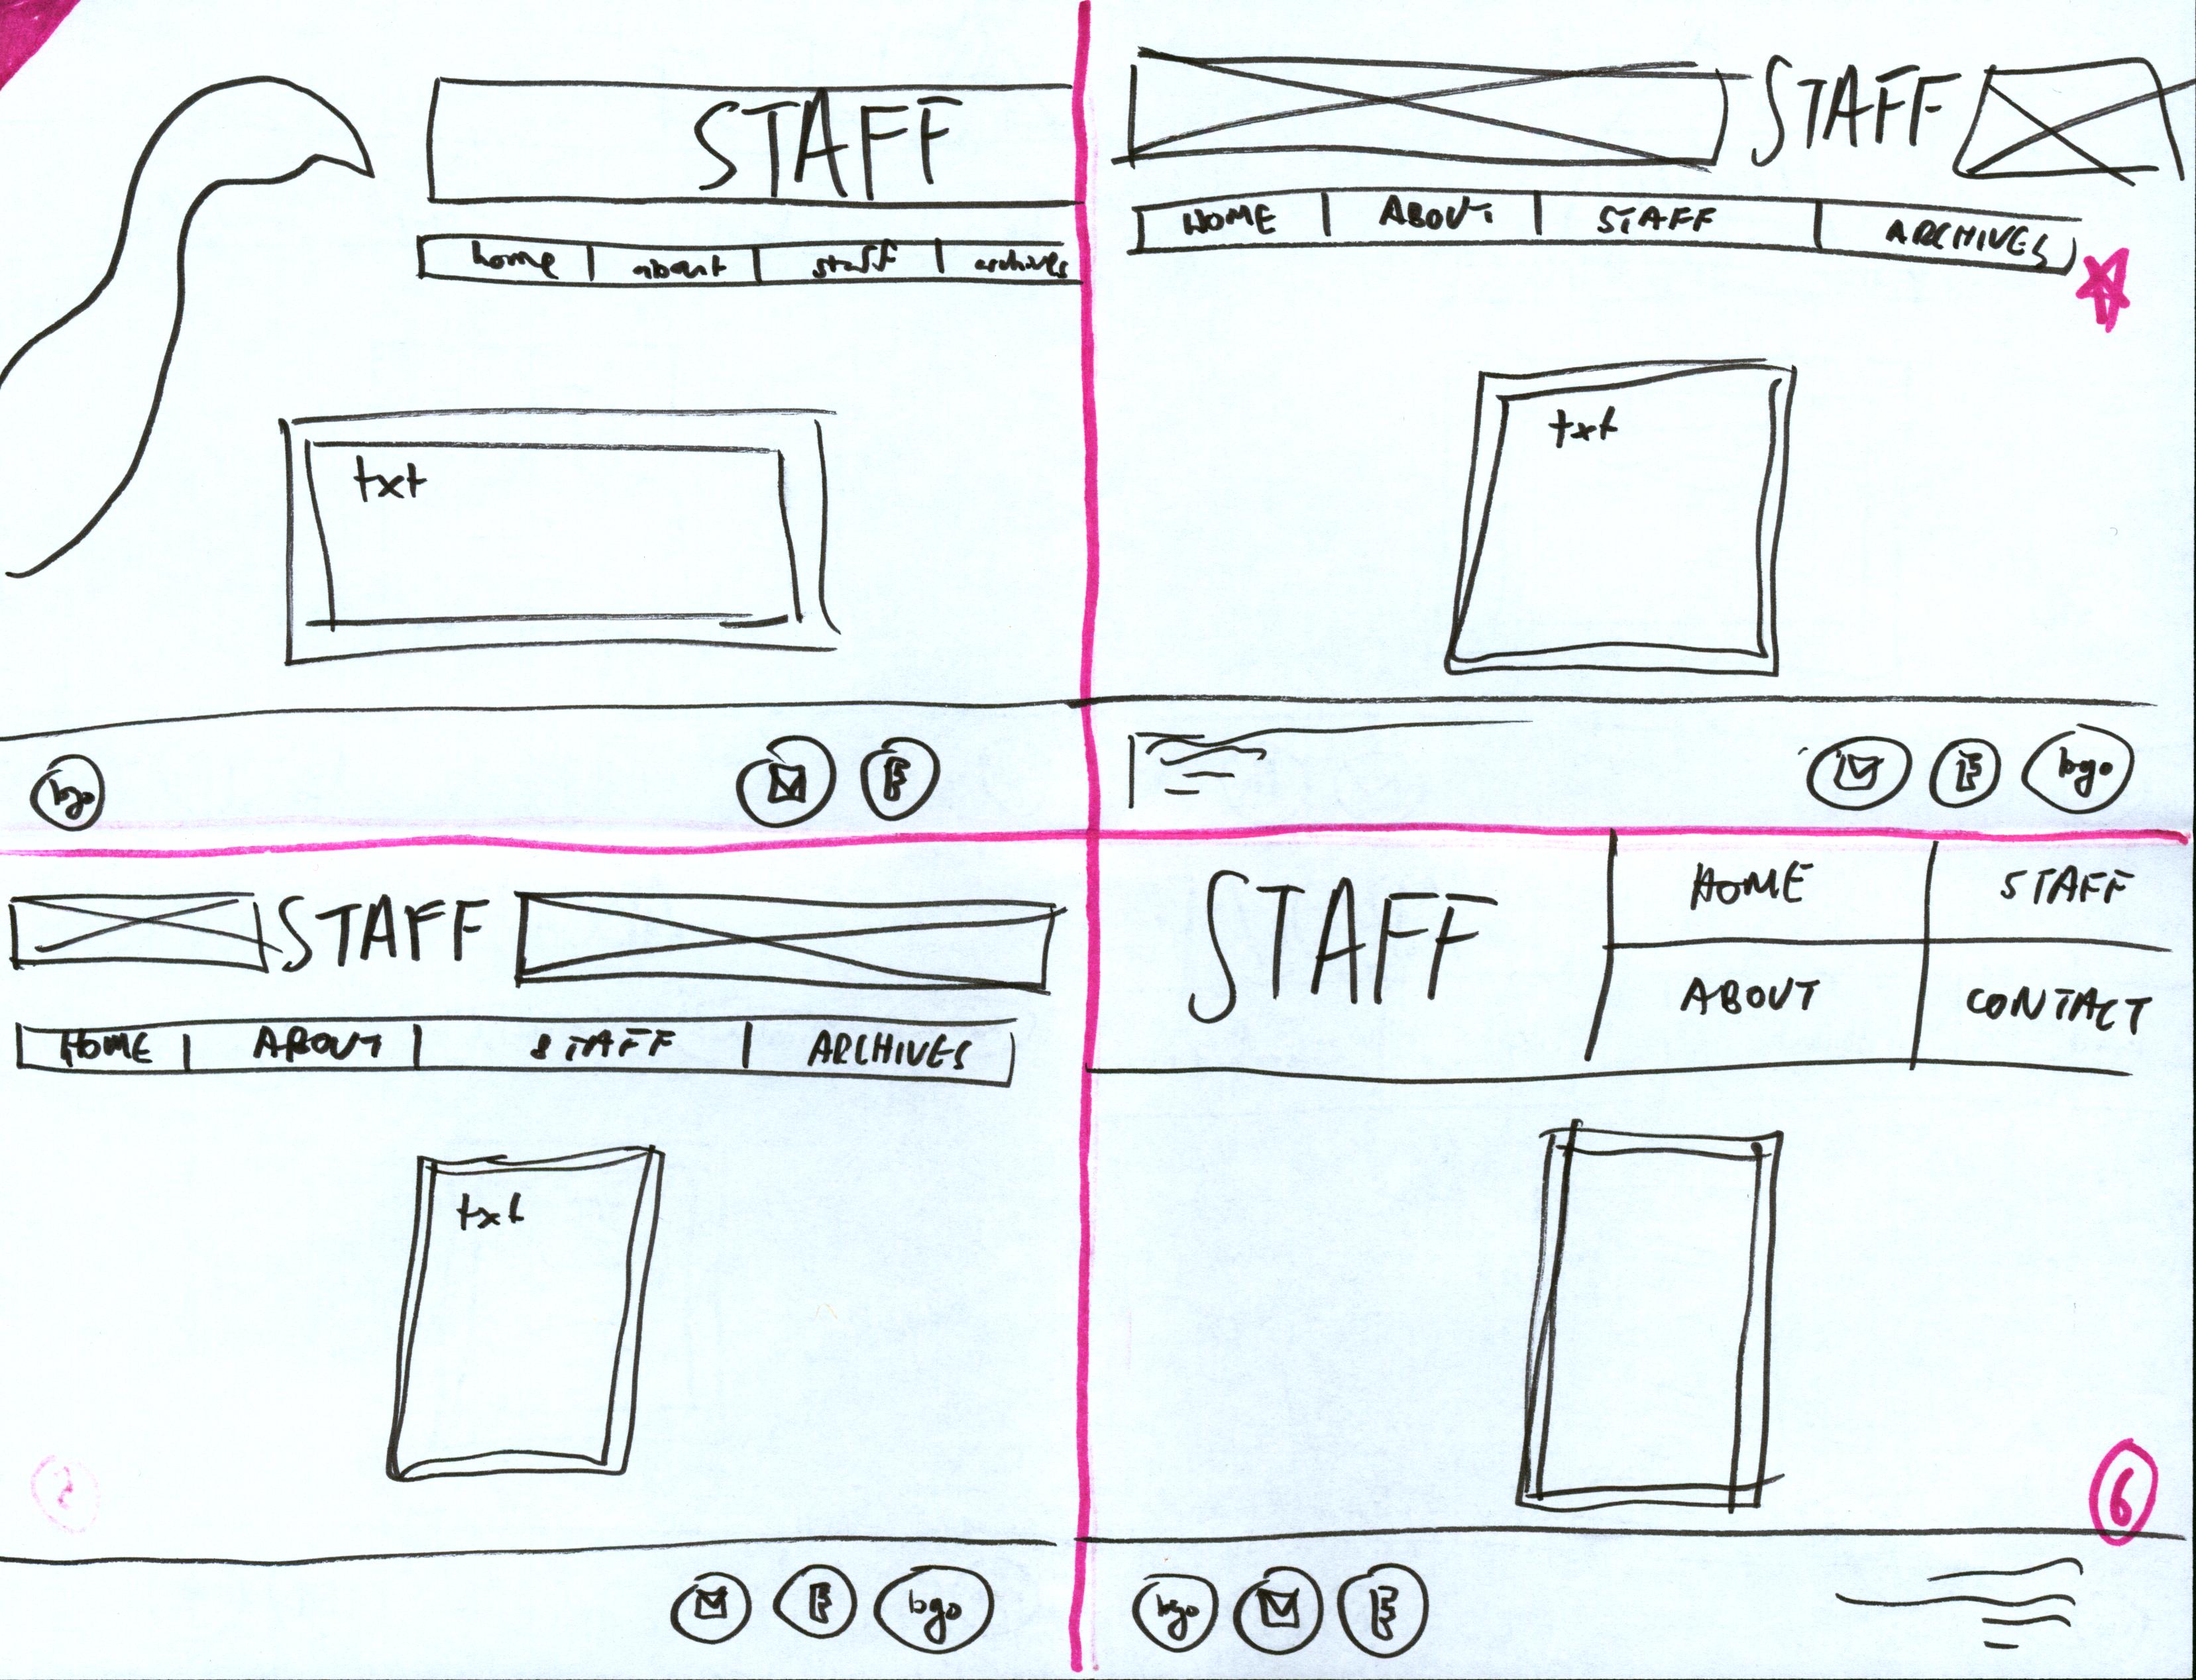 STAFF
home about staff archives
txt
logo
STAFF
HOME ABOUT STAFF ARCHIVES
txt
logo
STAFF
HOME ABOUT STAFF ARCHIVES
txt
logo
STAFF
HOME STAFF
ABOUT CONTACT
6
logo